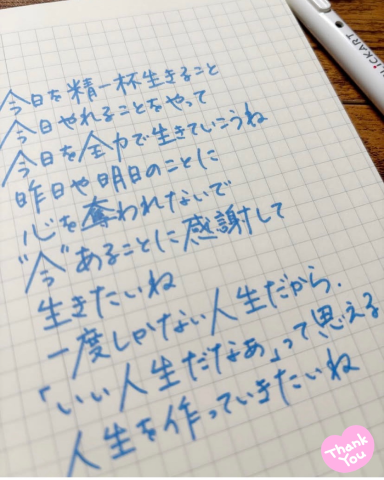 今日を精一杯生きること
今日やれることをやって
今日を全力で生きていこうね
昨日や明日のことに
心を奪われないで
"今"あることに感謝して
生きたいね
一度しかない人生だから、
「いい人生だなあ」って思える
人生を作っていきたいね
Thank
You